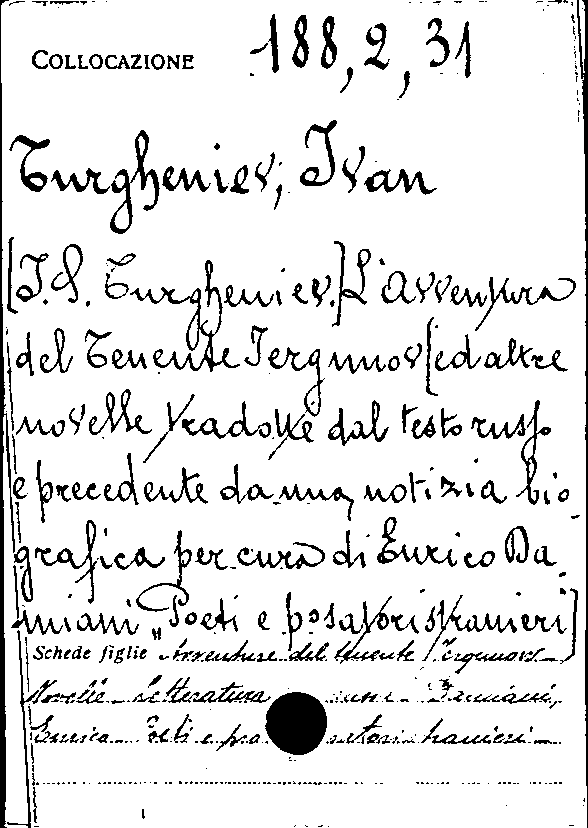 COLLOCAZIONE 188,2,31
Turgheniev, Ivan
[I.S. Turgheniev.] L'Avventura
del Tenente Jergunov [ed altre
novelle tradotte dal testo russo
e precedente da una notizia bio-
grafica per cura di Enrico Da-
miani „Poeti e prosatori stranieri]
Schede figlie Avventure del tenente Jergunov -
Novelle - Letteratura russa - Damiani,
Enrico - Poeti e pro satori stranieri -